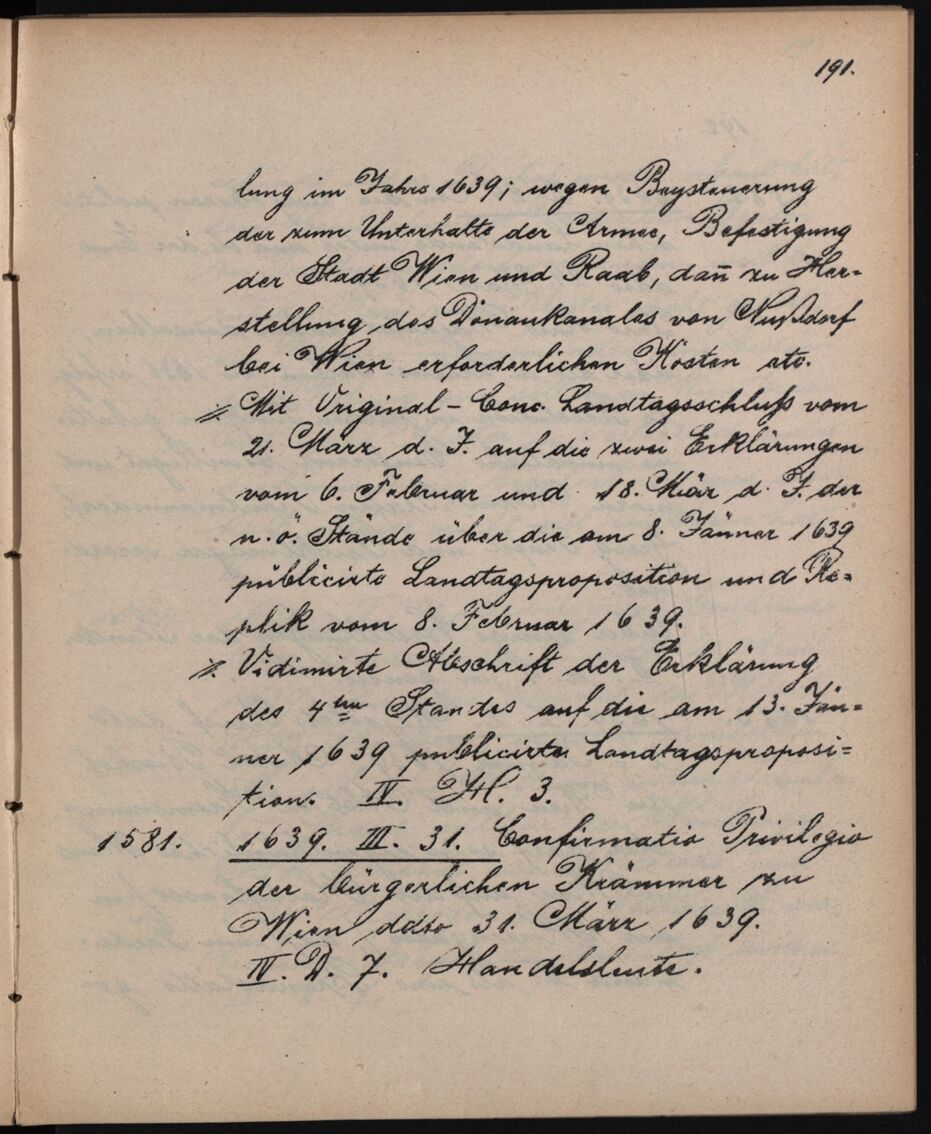 191.
lung im Jahre 1639; wegen Beysteuerung
der zum Unterhalte der Armee, Befestigung
der Stadt Wien und Raab, dan̄ zu Her=
stellung des Donaukanales von Nußdorf
bei Wien erforderlichen Kosten etc.
Mit Original - Conc. Landtagsschluß vom
21. März d. J. auf die zwei Erklärungen
vom 6. Februar und 18. Mär d. J. der
n. ö. Stände über die am 8. Jänner 1639
publicirte Landtagsproposition und Re=
plik vom 8. Februar 1639.
Vidimirte Abschrift der Erklärung
des 4ten Standes auf die am 13. Jän=
ner 1639 publicirte Landtagsproposi=
tion. IV. H. 3.
1581. 1639. III. 31. Confirmatio Privilegio
der bürgerlichen Krämmer zu
Wien ddto 31. März 1639.
IV. D. 7. Handelsleute.